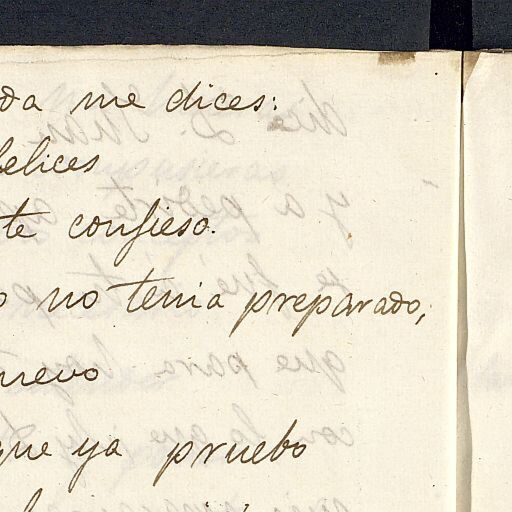 da me dices:
felices
te confieso.
no tenia preparado,
nuevo
que ya pruebo